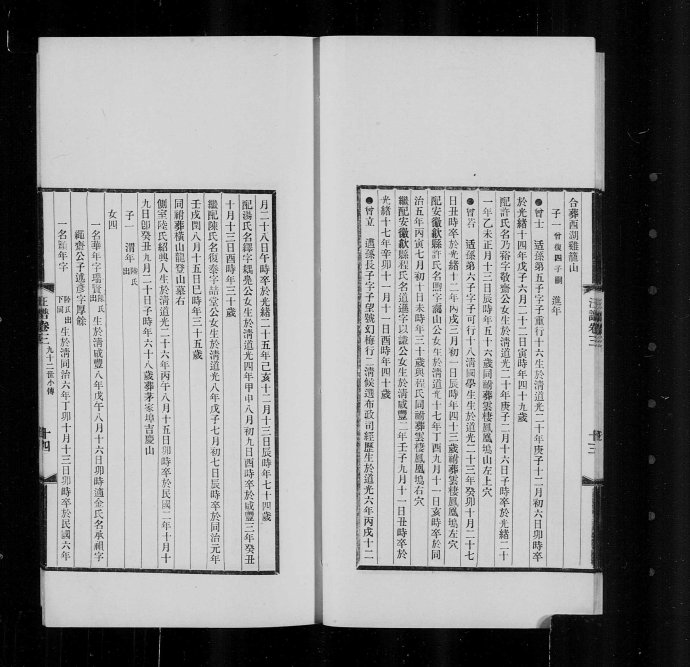 合葬西湖雞籠山
子一 曾復四子嗣 進年
●曾士 适孫第五子字子重行十六生於清道光二十年庚子十二月初六日卯時卒
於光緒十四年戊子六月二十二日寅時年四十九歲
配許氏名乃 字敬齋公女生於清道光二十年庚子二月十六日子時卒於光緒二十
一年乙未正月十三日辰時年五十六歲同祔葬雲棲鳳凰塢山左上穴
●曾若 适孫第六子字子可行十八清國學生生於道光二十三年癸卯十月二十七
日丑時卒於光緒十二年丙戌三月初一日辰時年四十三歲祔葬雲棲鳳凰塢左穴
配安徽歙縣許氏名 字 山公女生於清道光十七年丁酉九月十一日亥時卒於同
治五年丙寅七月初十日未時年三十歲與程氏同祔葬雲棲鳳凰塢右穴
繼配安徽歙縣程氏名道遜字以謙公女生於清咸豐二年壬子九月十一日丑時卒於
光緒十七年辛卯十一月十一日酉時年四十歲
●曾立 适孫長子字子望號幻梅行二清候選布政司經歷生於道光六年丙戌十二
汪譜卷三 十三
月二十八日午時卒於光緒二十五年己亥十二月十三日辰時年七十四歲
配湯氏名繹字 堯公女生於清道光四年甲申八月初九日酉時卒於咸豐三年癸丑
十月十三日酉時年三十歲
繼配陳氏名復泰字喆堂公女生於清道光八年戊子七月初七日辰時卒於同治元年
壬戌閏八月十五日巳時年三十五歲
同祔葬橫山龍登山墓右
側室陸氏紹興人生於清道光二十六年丙午八月十五日卯時卒於民國二年十月十
九日卽癸丑九月二十日子時年六十八歲葬茅家埠吉慶山
子一 渭年 陸氏出
女四
一名華年字瑞寶 陳氏出 生於清咸豐八年戊午八月十六日卯時適金氏名承禔字
齋公子 彥字厚餘
一名 年字 陸氏出下同 生於清同治六年丁卯十月十三日卯時卒於民國六年
汪譜卷三 九十二世小傳 十四